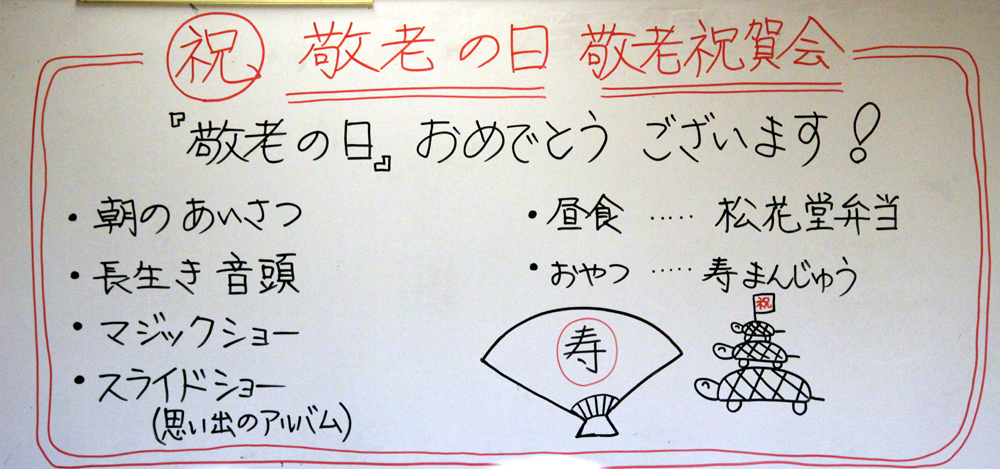 祝 敬老の日 敬老祝賀会
『敬老の日』おめでとう ございます!
・朝のあいさつ
・長生き音頭
・マジックショー
・スライドショー
(思い出のアルバム)
・昼食 ‥‥‥ 松花堂弁当
・おやつ ‥‥‥ 寿まんじゅう
寿
祝